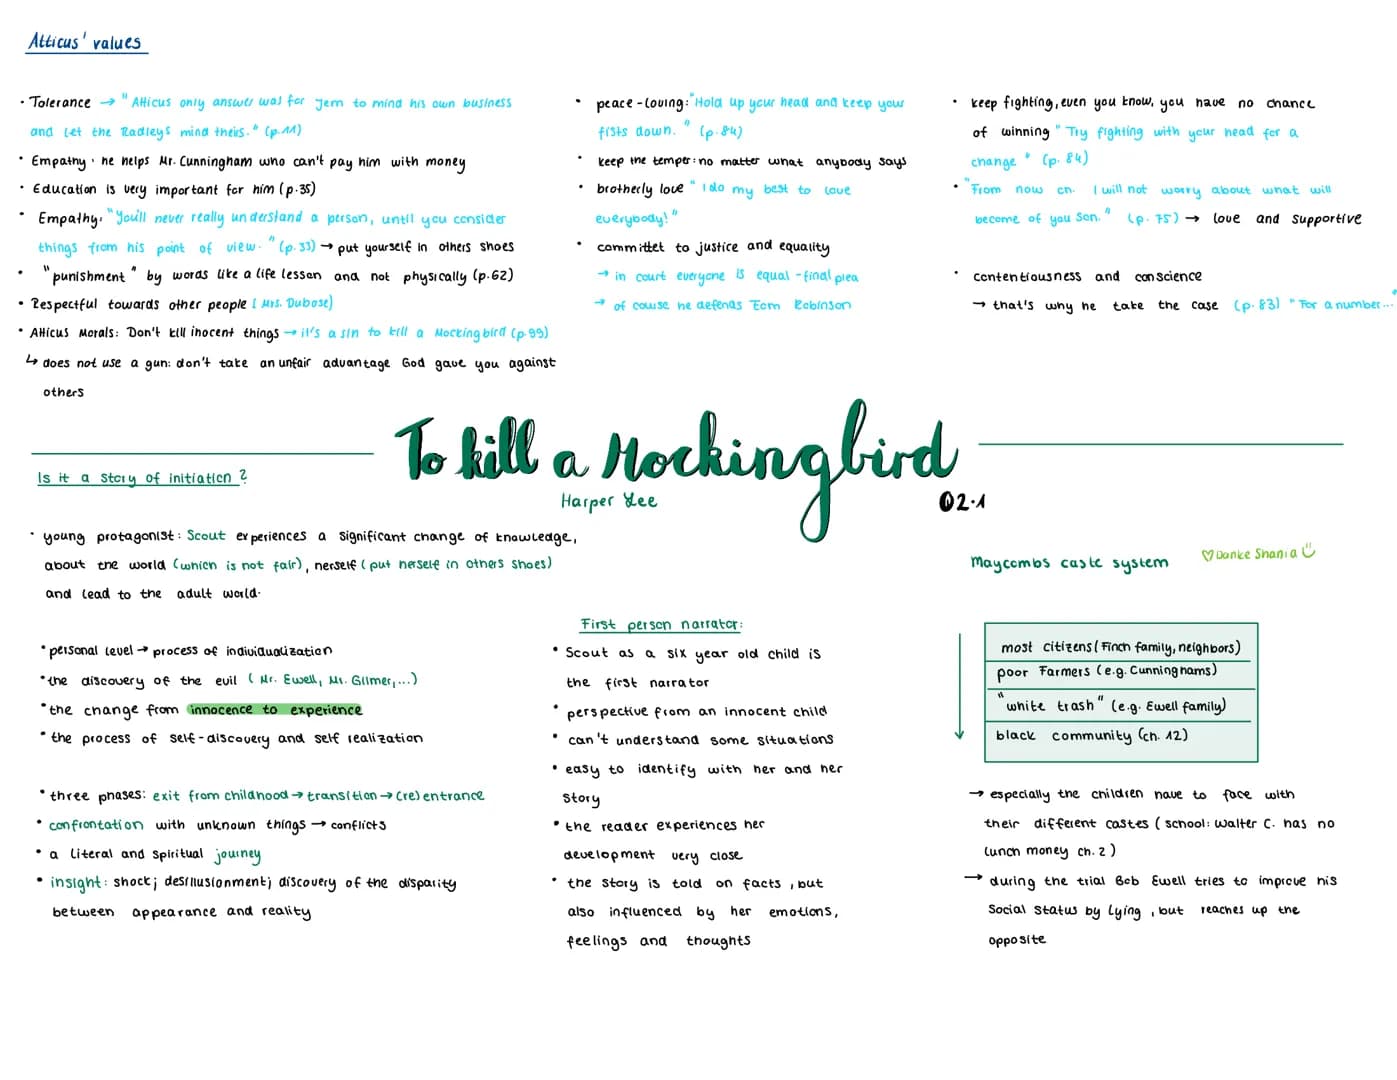 Atticus' values
• Tolerance → "Atticus only answer was for Jem to mind his own business
and let the Radleys mind theirs." (p.11)
• Empathy: he helps Mr. Cunningham who can't pay him with money
• Education is very important for him (p.35)
• Empathy: "You'll never really understand a person, until you consider
things from his point of view." (p.33) → put yourself in others shoes
• "punishment" by words like a life lesson and not physically (p.62)
• Respectful towards other people (Mrs. Dubose)
• Atticus Morals: Don't kill inocent things → it's a sin to kill a Mockingbird (p.99)
↳ does not use a gun: don't take an unfair advantage God gave you against
others
• peace-loving: "Hold up your head and keep your
fists down." (p.84)
• keep the temper: no matter what anybody says
• brotherly love "I do my best to love
everybody!"
• committet to justice and equality
→ in court everyone is equal - final plea
→ of couse he defends Tom Robinson
• keep fighting, even you know, you have no chance
of winning "Try fighting with your head for a
change" (p. 84)
• "From now on. I will not worry about what will
become of you Son." (p. 75) → love and supportive
• contentiousness and conscience
→ that's why he take the case (p. 83) "For a number..."
To kill a Mockingbird
Harper Lee
02.1
Is it a story of initiation?
• young protagonist: Scout experiences a significant change of knowledge,
about the world (which is not fair), herself (put herself in others shoes)
and lead to the adult world.
• personal level → process of individualization
• the discovery of the evil (Mr. Ewell, Mr. Gilmer,...)
• the change from innocence to experience
• the process of self-discovery and self realization
• three phases: exit from childhood → transition → (re) entrance
• confrontation with unknown things → conflicts
• a literal and spiritual journey
• insight: shock; desillusionment; discovery of the disparity
between appearance and reality
First person narrator:
• Scout as a six year old child is
the first narrator
• perspective from an innocent child
• can't understand some situations
• easy to identify with her and her
story
• the reader experiences her
development very close
• the story is told on facts, but
also influenced by her emotions,
feelings and thoughts
Maycombs caste system
♡ Danke Shania ☺
most citizens (Finch family, neighbors)
poor Farmers (e.g. Cunninghams)
"white trash" (e.g. Ewell family)
black community (ch. 12)
→ especially the children have to face with
their different castes (school: Walter C. has no
lunch money ch. 2)
→ during the trial Bob Ewell tries to improve his
Social Status by lying, but reaches up the
opposite